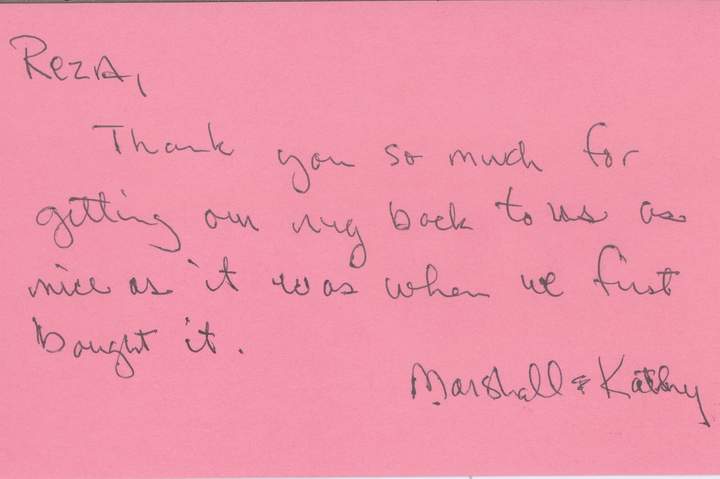 Reza,
Thank you so much for
getting our rug back to us as
nice as it was when we first
bought it.
Marshall & Kathy